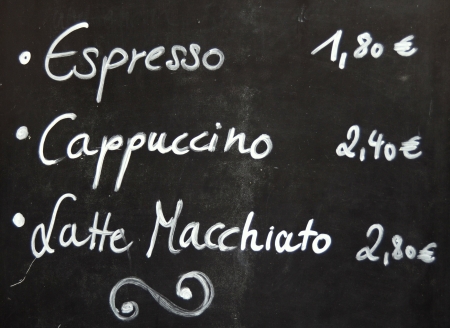 • Espresso 1,80 €
• Cappuccino 2,40 €
• Latte Macchiato 2,80 €